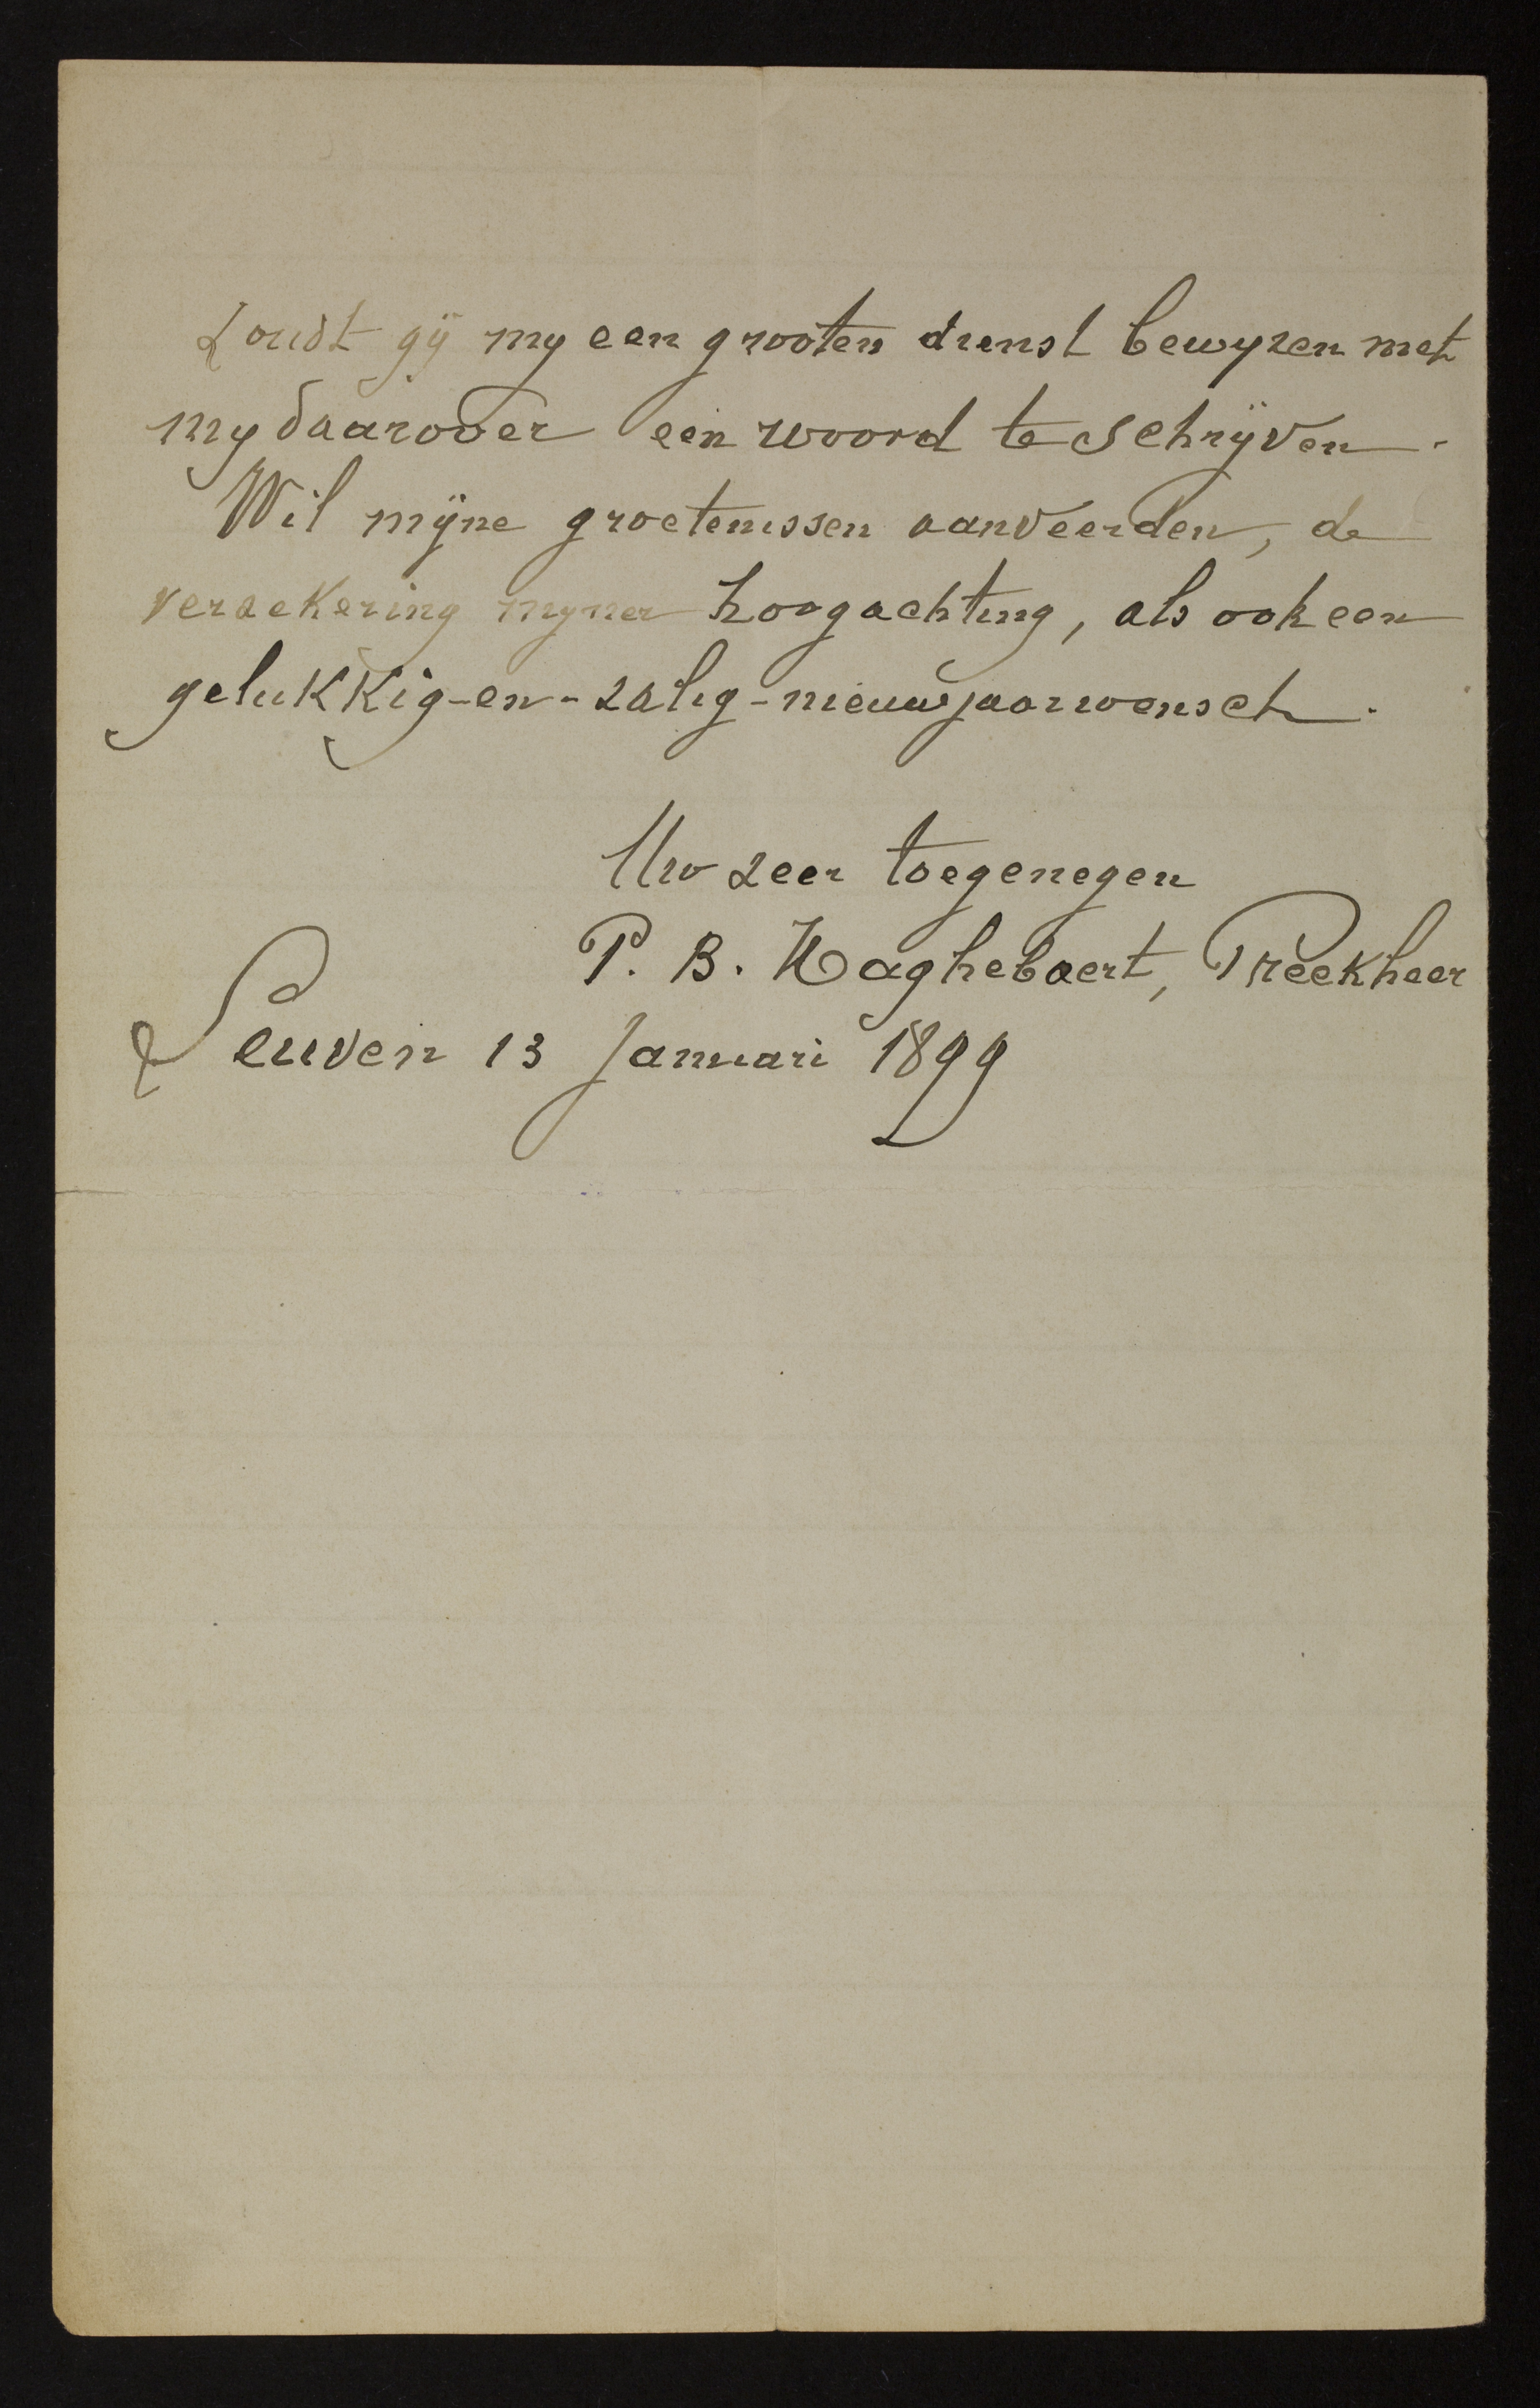 Zoudt gij my een grooten dienst bewyzen met
my daarover een woord te schrijven.
Wil mijne groetenissen aanveerden, de
verzekering myner hoogachting, als ook een
gelukkig-en-zalig-nieuwjaarwensch.
Uw zeer toegenegen
P. B. Haghebaert, Preekheer
Leuven 13 Januari 1899